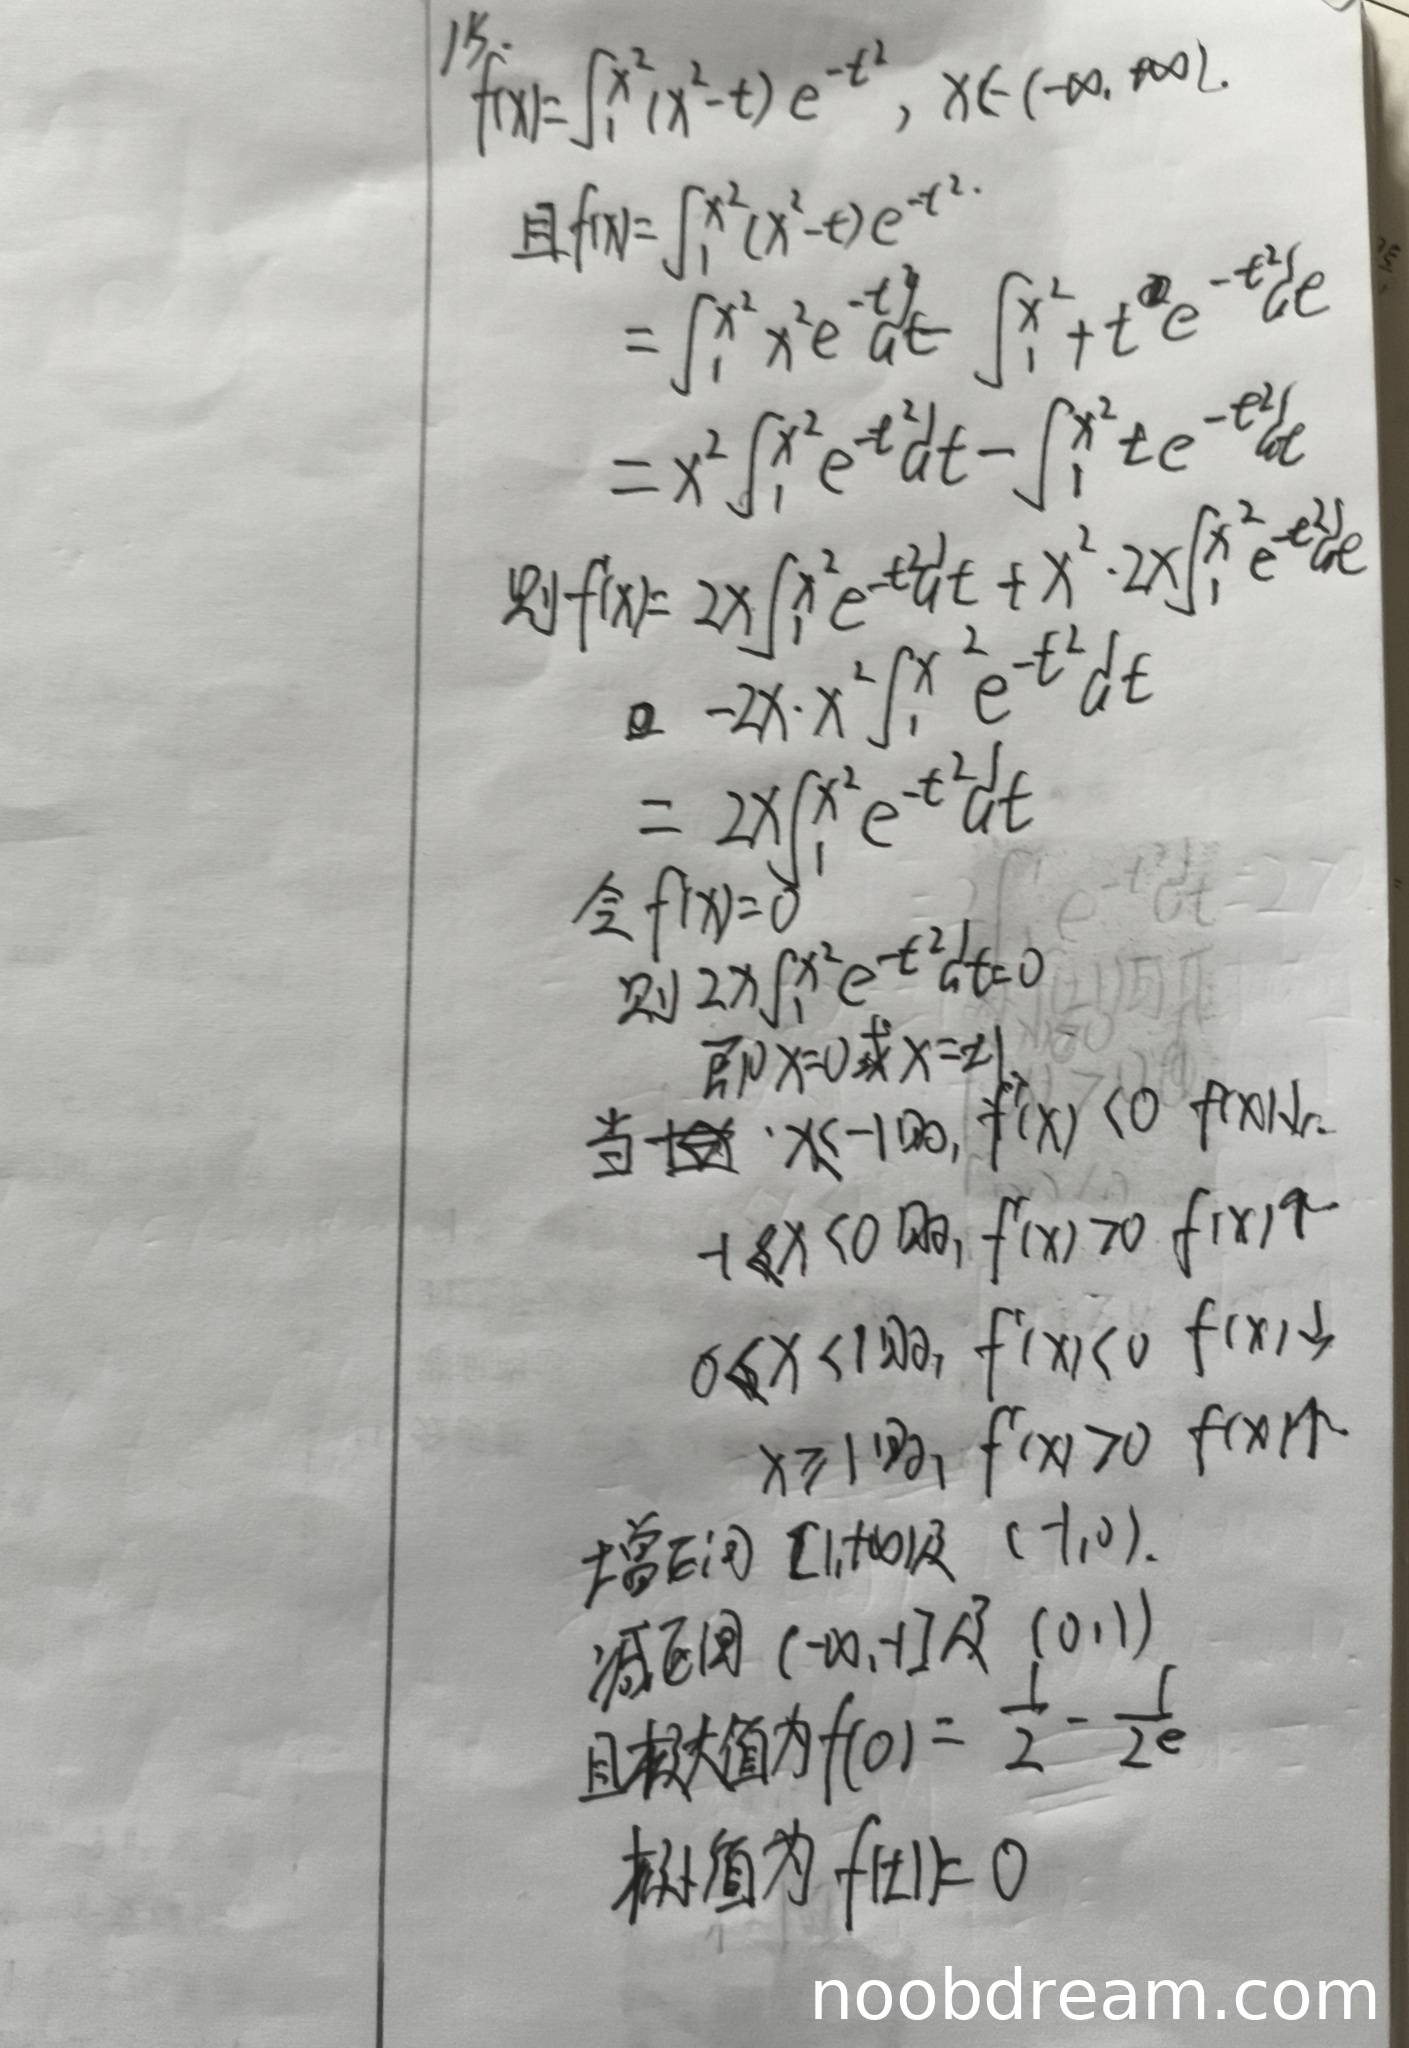 15.
f(x)=∫₁^{x²}(x²-t)e^{-t²}, x∈(-∞,+∞).
且f(x)=∫₁^{x²}(x²-t)e^{-t²}.
=∫₁^{x²}x²e^{-t²}dt-∫₁^{x²}+te^{-t²}dt
=x²∫₁^{x²}e^{-t²}dt-∫₁^{x²}te^{-t²}dt
则f'(x)=2x∫₁^{x²}e^{-t²}dt+x²·2x∫₁^{x²}e^{-t²}dt
-2x·x²∫₁^{x²}e^{-t²}dt
=2x∫₁^{x²}e^{-t²}dt
令f'(x)=0
则2x∫₁^{x²}e^{-t²}dt=0
即x=0或x=±1
当x≤-1时,f'(x)<0 f(x)↓.
-1<x<0时,f'(x)>0 f(x)↑
0<x<1时,f'(x)<0 f(x)↓
x≥1时,f'(x)>0 f(x)↑
增区间[1,+∞)及(-1,0).
减区间(-∞,-1]及(0,1)
且极大值为f(0)=1/2-1/2e
极小值为f(±1)=0
noobdream.com